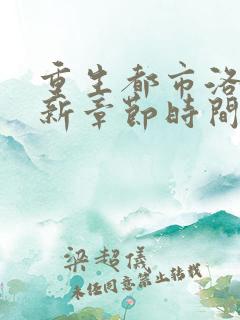 重生都市洛
新章節時間
梁超儀
未经同意禁止转载